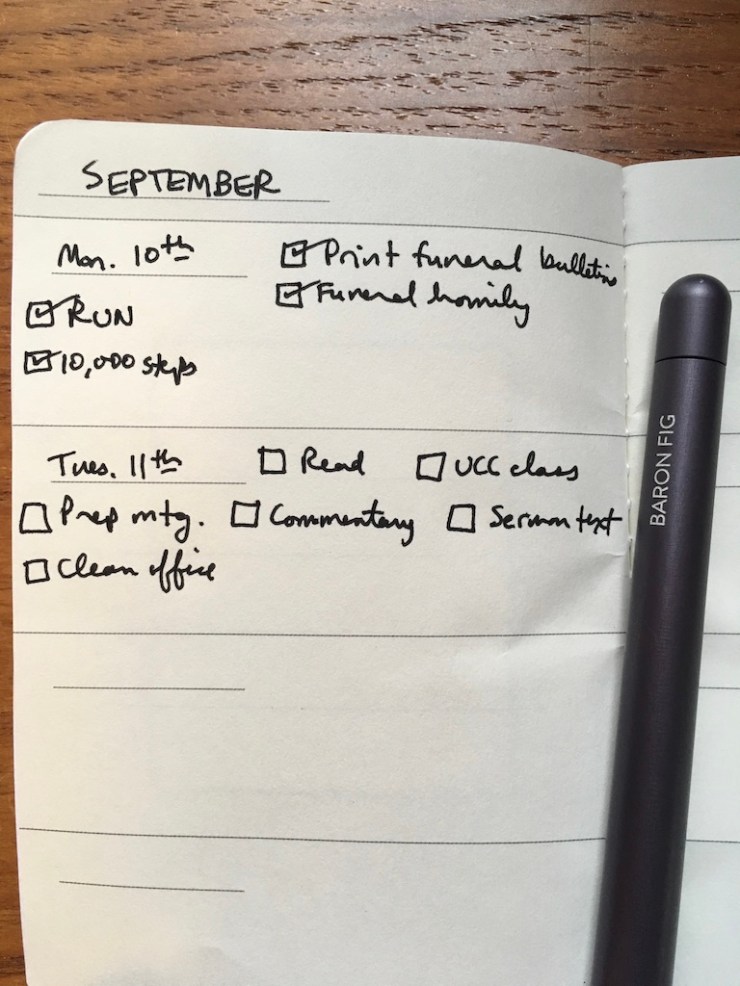 SEPTEMBER
Mon. 10th
☑ RUN
☑ 10,000 steps
☑ Print funeral bulletins
☑ Funeral homily
Tues. 11th ☐ Read ☐ UCC class
☐ Prep mtg. ☐ Commentary ☐ Sermon text
☐ Clean office
BARON FIG